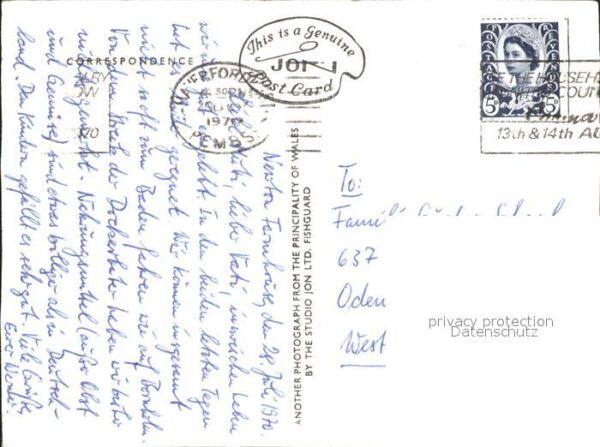 CORRESPONDENCE
This is a Genuine
JON
Post Card
HAVERFORDWEST
4.30PM
1970
PEMBS
5D
E THE HOUSEH
COUN
13th & 14th AU
ANOTHER PHOTOGRAPH FROM THE PRINCIPALITY OF WALES
BY THE STUDIO JON LTD. FISHGUARD
Newton Farmhouse, den 28. Juli 1970.
Liebe Mutti, lieber Vati, inzwischen haben
wir uns eingelebt. In den beiden letzten Tagen
hat es geregnet. Wir können insgesamt
nicht oft zum Baden fahren wie auf Bornholm.
Von dem Streik der Dockarbeiter haben wir bisher
nichts gemerkt. Nahrungsmittel (außer Obst
und Gemüse) sind etwas billiger als in Deutsch-
land. Den Kindern gefällt es sehr gut. Viele Grüße,
To:
637
Oden
West
privacy protection
Datenschutz